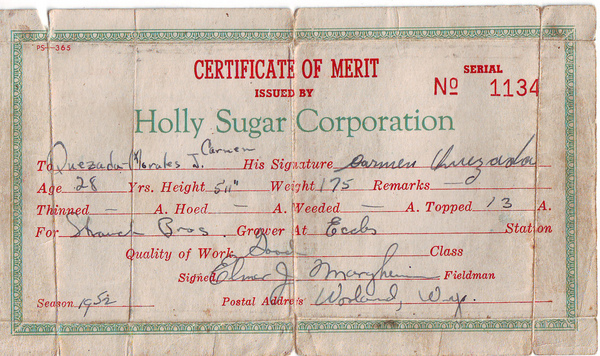 PS-365
CERTIFICATE OF MERIT
ISSUED BY
SERIAL
No 1134
Holly Sugar Corporation
To Quezada-Morales J. Carmen His Signature Carmen Quezada
Age 28 Yrs. Height 5'11" Weight 175 Remarks —
Thinned — A. Hoed — A. Weeded — A. Topped 13 A.
For Strauch Bros. Grower At Eccles Station
Quality of Work Good Class
Signed Elmer J. Fieldman
Season 1952 Postal Address Worland, Wyo.